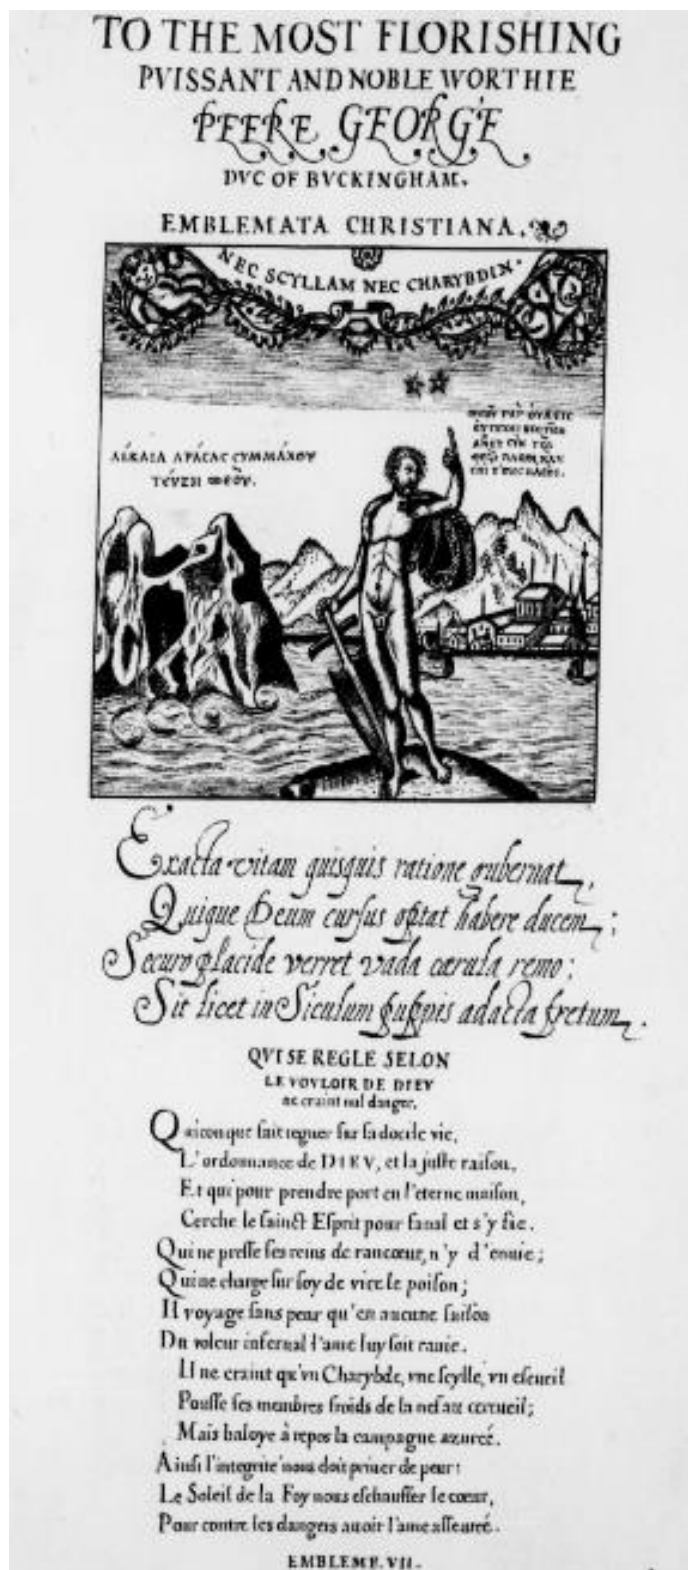 TO THE MOST FLORISHING
PVISSANT AND NOBLE WORTHIE
PEERE GEORGE
DVC OF BVCKINGHAM.
EMBLEMATA CHRISTIANA.
NEC SCYLLAM NEC CHARYBDIN.
ΔΙΚΑΙΑ ΔΡΑCΑC CΥΜΜΑΧΟΥ
ΤΕΥΖΗ ΘΕΟΥ.
Exacta vitam quisquis ratione gubernat,
Quique Deum cursus optat habere ducem;
Securo placide verret vada cærula remo:
Sit licet in Siculum puppis adacta fretum.
QVI SE REGLE SELON
LE VOVLOIR DE DIEV
ne craint nul danger.
Quiconque fait regner sur sa docile vie,
L'ordonnance de DIEV, et la juste raison,
Et qui pour prendre port en l'eterne maison,
Cerche le sainct Esprit pour fanal et s'y fie.
Qui ne presse ses reins de rancœur, n'y d'enuie;
Qui ne charge sur soy de vice le poison;
Il voyage sans peur qu'en aucune saison
Du voleur infernal l'ame luy soit rauie.
Il ne craint qu'vn Charybde, vne scylle, vn escueil
Pousse ses membres froids de la nef au cercueil;
Mais baloye à repos la campagne azureé.
Ainsi l'integrite nous doit priuer de peur:
Le Soleil de la Foy nous eschauffer le cœur,
Pour contre les dangers auoir l'ame asseureé.
EMBLEME. VII.